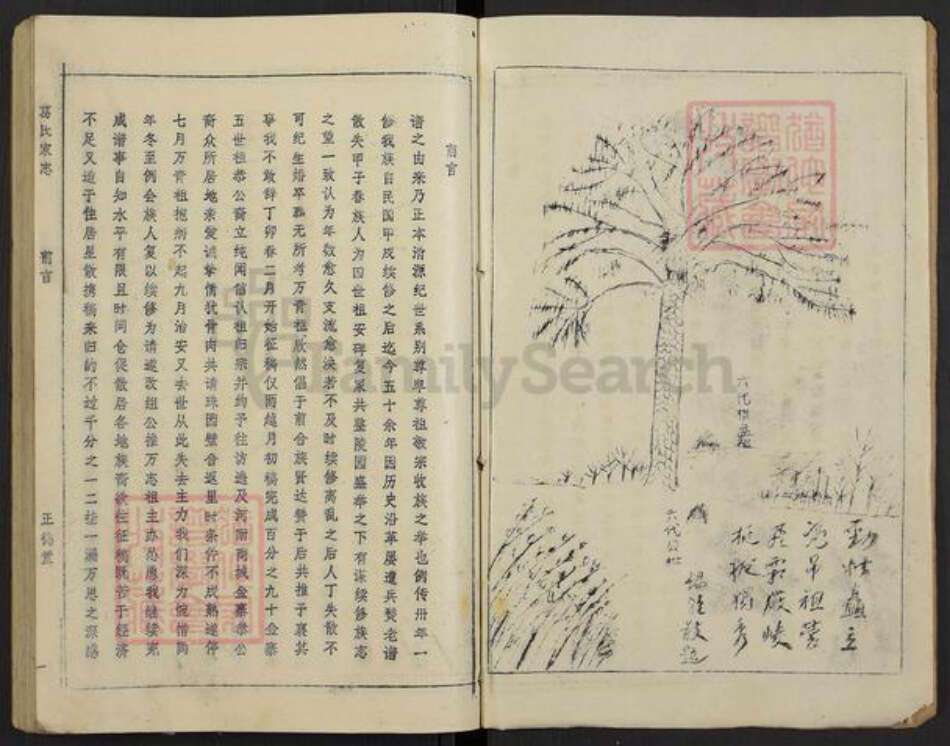 前言
谱之由来乃正本清源纪世系别尊卑尊祖敬宗收族之举也例传卅年一
修我族自民国甲戌续修之后迄今五十余年因历史沿革屡遭兵燹老谱
散失甲子春族人为四世祖安碑复聚共鉴陵园盛举之下有谋续修族志
之望一致认为年数愈久支流愈泱若不及时续修离乱之后人丁失散不
可纪生婚卒葬无所考万青祖欣然倡于前合族贤达赞于后共推予襄其
事我不敢辞丁卯春二月开始征稿仅两越月初稿完成百分之九十金寨
五世祖恭公裔立纯闻信认祖归宗并约予往访造及河南商城金寨恭公
裔众所居地亲爱诚挚情犹骨肉共请珠园璧合返里时条件不成熟遂停
七月万青祖抱病不起九月治安又去世从此失去主力我们深为惋惜同
年冬至例会族人复以续修为请遂改组公推万志祖主办怂恿我继续完
成谱事自知水平有限且时间仓促散居各地族裔
不足又迫于住居星散携稿来归的不过千分之一二挂一漏万思之深感
葛氏家志
前言
正伦堂
一
六代祖墓
六代公妣
劲惟矗立
祖茔
挺拔独秀